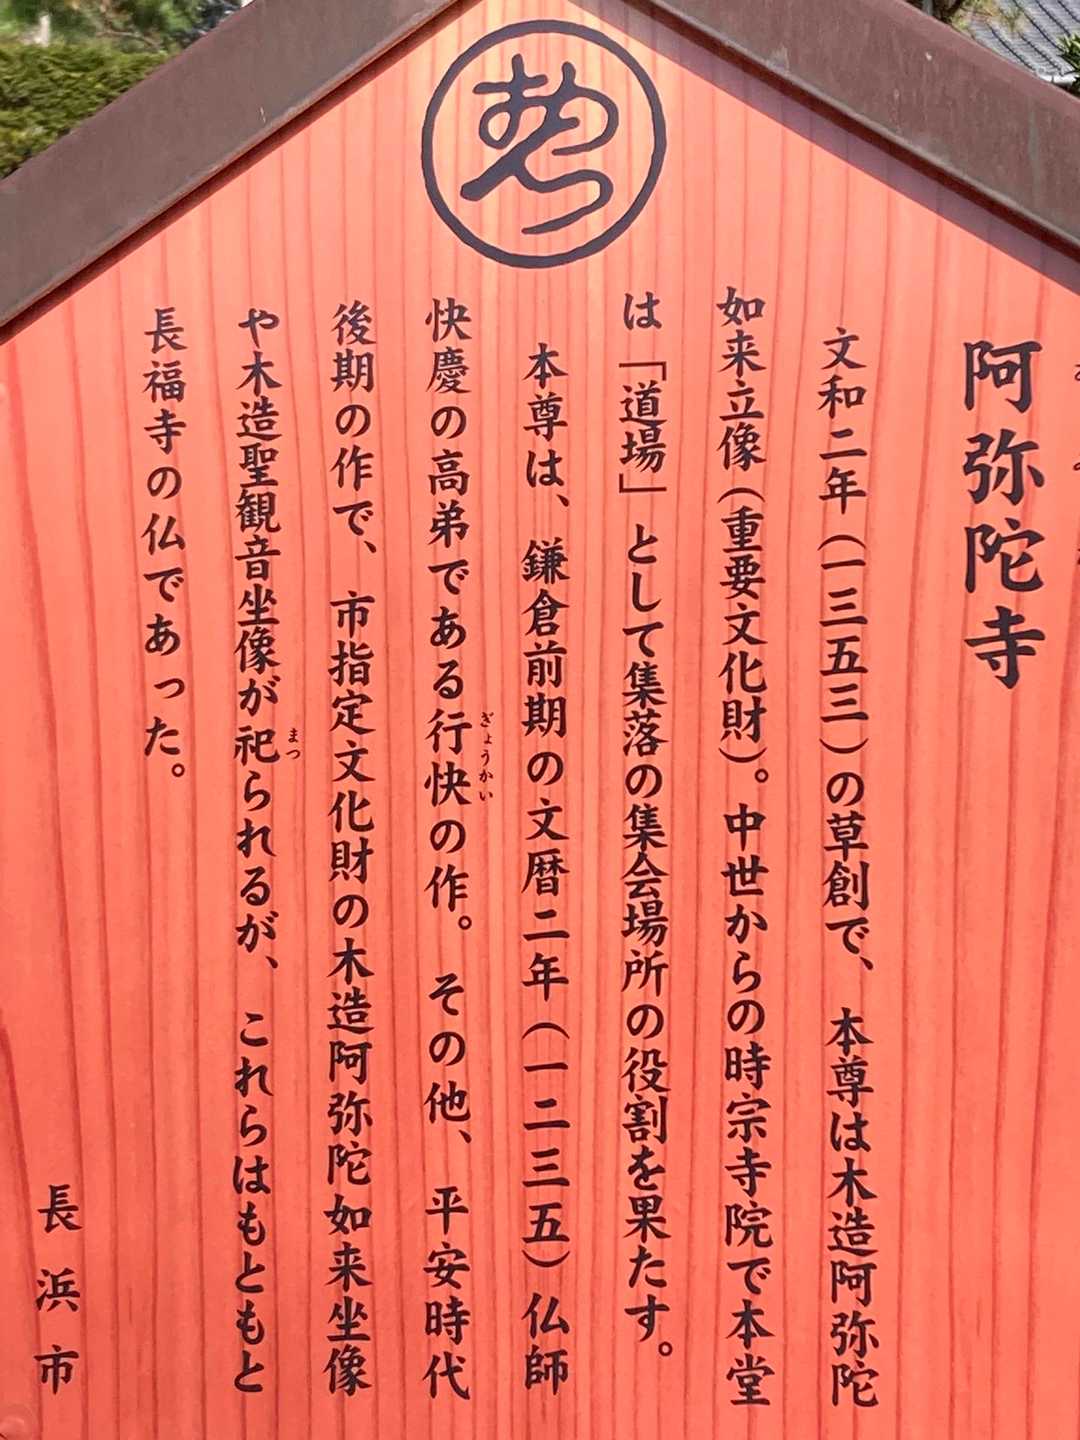 阿弥陀寺
文和二年（一三五三）の草創で、本尊は木造阿弥陀
如来立像（重要文化財）。中世からの時宗寺院で本堂
は「道場」として集落の集会場所の役割を果たす。
本尊は、鎌倉前期の文暦二年（一二三五）仏師
快慶の高弟である行快の作。その他、平安時代
ぎょうかい
後期の作で、市指定文化財の木造阿弥陀如来坐像
や木造聖観音坐像が祀られるが、これらはもともと
まつ
長福寺の仏であった。
長浜市